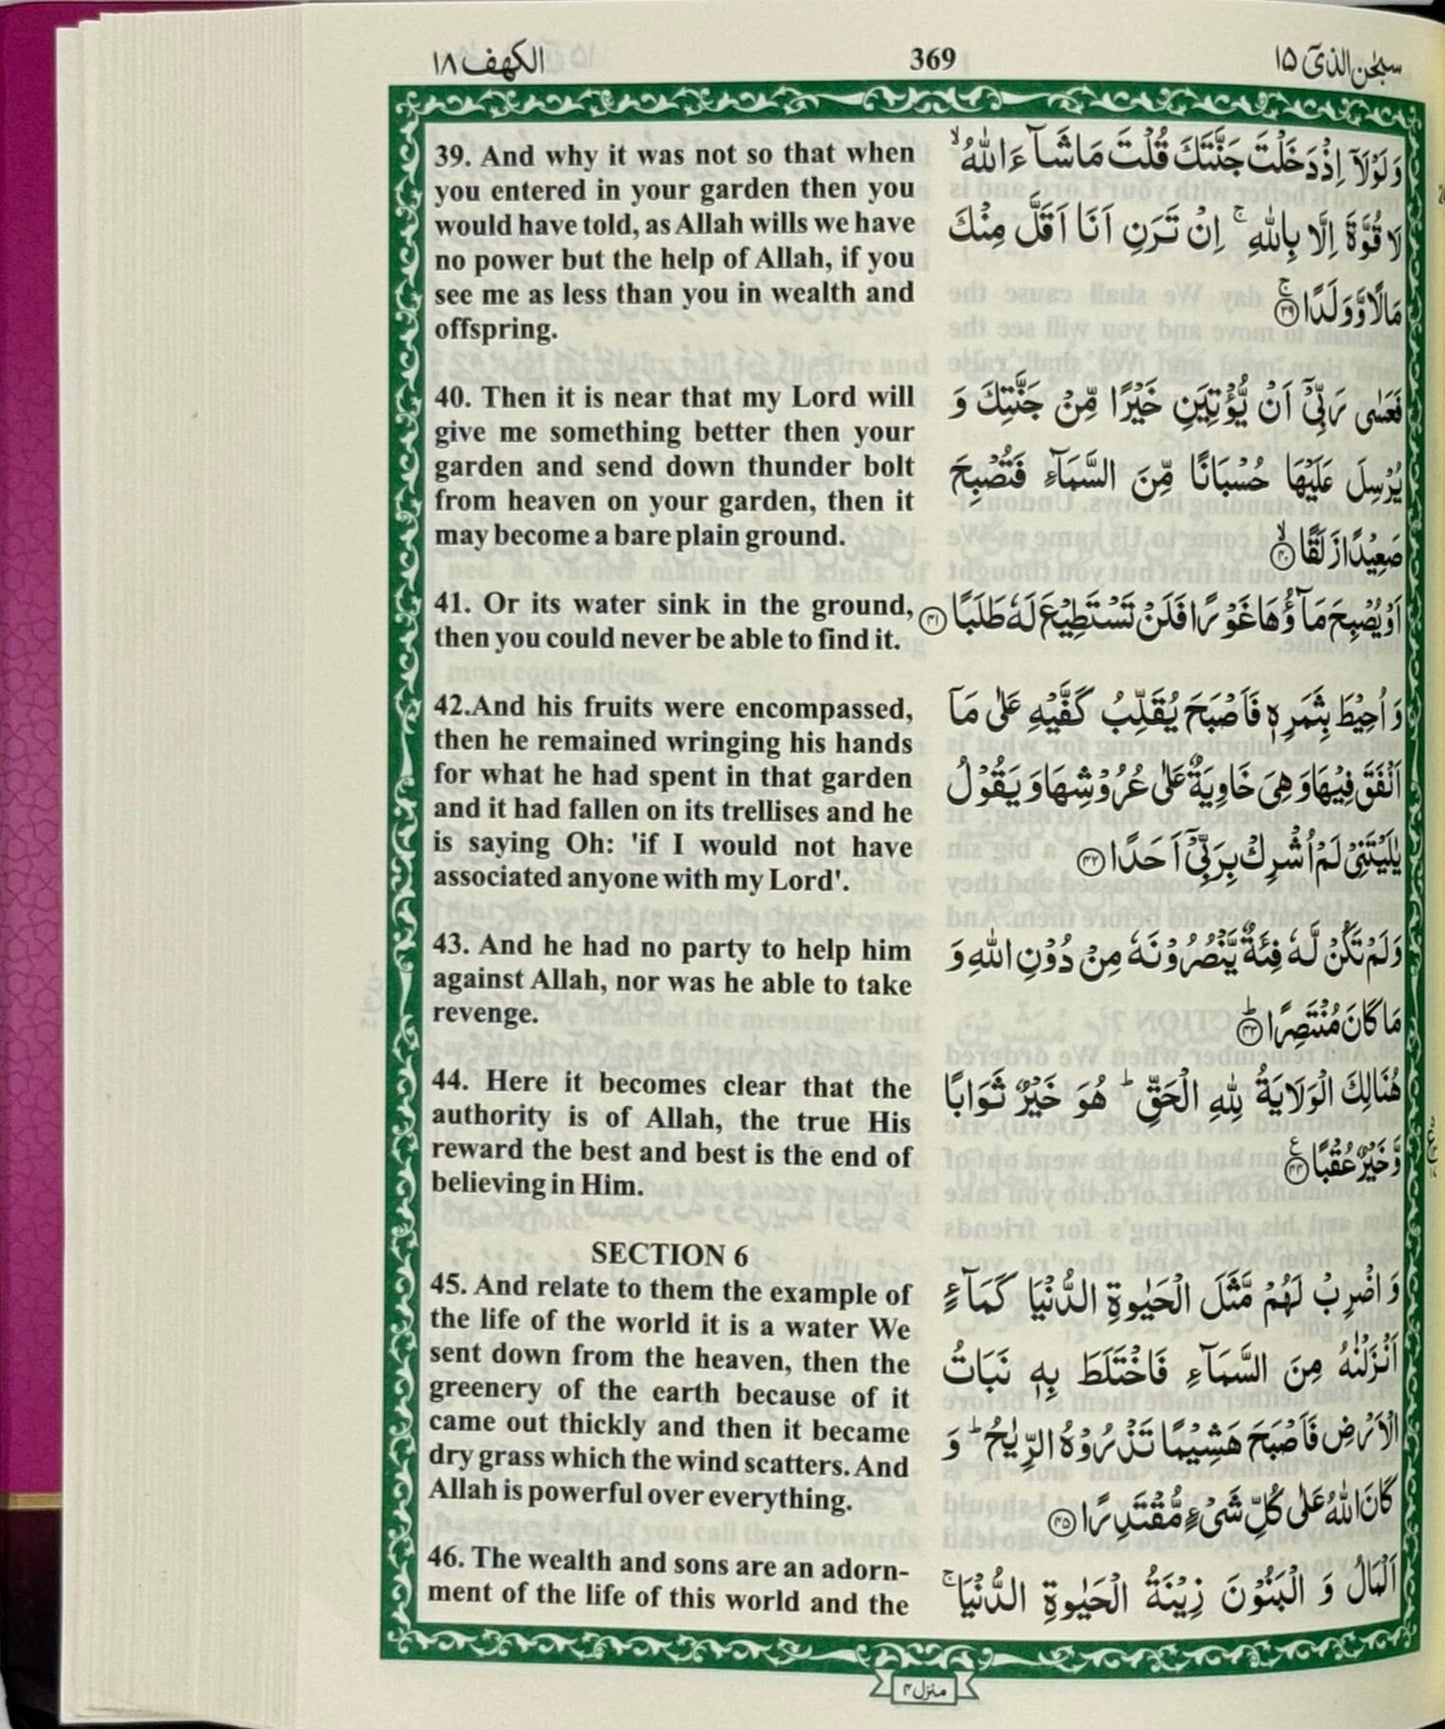 الكهف ١٨
369
سبحٰن الذیٓ ١٥
39. And why it was not so that when
you entered in your garden then you
would have told, as Allah wills we have
no power but the help of Allah, if you
see me as less than you in wealth and
offspring.
وَلَوۡلَاۤ اِذۡ دَخَلۡتَ جَنَّتَكَ قُلۡتَ مَا شَآءَ اللّٰهُ ۙ
لَا قُوَّةَ اِلَّا بِاللّٰهِ ۚ اِنۡ تَرَنِ اَنَا اَقَلَّ مِنۡكَ
مَالًا وَّوَلَدًا ۚ ﴿۳۹﴾
40. Then it is near that my Lord will
give me something better then your
garden and send down thunder bolt
from heaven on your garden, then it
may become a bare plain ground.
فَعَسٰى رَبِّىۡۤ اَنۡ يُّؤۡتِيَنِ خَيۡرًا مِّنۡ جَنَّتِكَ وَ
يُرۡسِلَ عَلَيۡهَا حُسۡبَانًا مِّنَ السَّمَآءِ فَتُصۡبِحَ
صَعِيۡدًا زَلَقًا ۙ ﴿۴۰﴾
41. Or its water sink in the ground,
then you could never be able to find it.
اَوۡ يُصۡبِحَ مَآؤُهَا غَوۡرًا فَلَنۡ تَسۡتَطِيۡعَ لَهٗ طَلَبًا ﴿۴۱﴾
42.And his fruits were encompassed,
then he remained wringing his hands
for what he had spent in that garden
and it had fallen on its trellises and he
is saying Oh: 'if I would not have
associated anyone with my Lord'.
وَ اُحِيۡطَ بِثَمَرِهٖ فَاَصۡبَحَ يُقَلِّبُ كَفَّيۡهِ عَلٰى مَاۤ
اَنۡفَقَ فِيۡهَا وَهِىَ خَاوِيَةٌ عَلٰى عُرُوۡشِهَا وَيَقُوۡلُ
يٰلَيۡتَنِىۡ لَمۡ اُشۡرِكۡ بِرَبِّىۡۤ اَحَدًا ﴿۴۲﴾
43. And he had no party to help him
against Allah, nor was he able to take
revenge.
وَلَمۡ تَكُنۡ لَّهٗ فِئَةٌ يَّنۡصُرُوۡنَهٗ مِنۡ دُوۡنِ اللّٰهِ وَ
مَا كَانَ مُنۡتَصِرًا ؕ ﴿۴۳﴾
44. Here it becomes clear that the
authority is of Allah, the true His
reward the best and best is the end of
believing in Him.
هُنَالِكَ الۡوَلَايَةُ لِلّٰهِ الۡحَقِّ ؕ هُوَ خَيۡرٌ ثَوَابًا
وَّخَيۡرٌ عُقۡبًا ﴿۴۴﴾ ع
SECTION 6
45. And relate to them the example of
the life of the world it is a water We
sent down from the heaven, then the
greenery of the earth because of it
came out thickly and then it became
dry grass which the wind scatters. And
Allah is powerful over everything.
وَ اضۡرِبۡ لَهُمۡ مَّثَلَ الۡحَيٰوةِ الدُّنۡيَا كَمَآءٍ
اَنۡزَلۡنٰهُ مِنَ السَّمَآءِ فَاخۡتَلَطَ بِهٖ نَبَاتُ
الۡاَرۡضِ فَاَصۡبَحَ هَشِيۡمًا تَذۡرُوۡهُ الرِّيٰحُ ؕ وَ
كَانَ اللّٰهُ عَلٰى كُلِّ شَىۡءٍ مُّقۡتَدِرًا ﴿۴۵﴾
46. The wealth and sons are an adorn-
ment of the life of this world and the
اَلۡمَالُ وَ الۡبَنُوۡنَ زِيۡنَةُ الۡحَيٰوةِ الدُّنۡيَا ۚ
منزل ۴